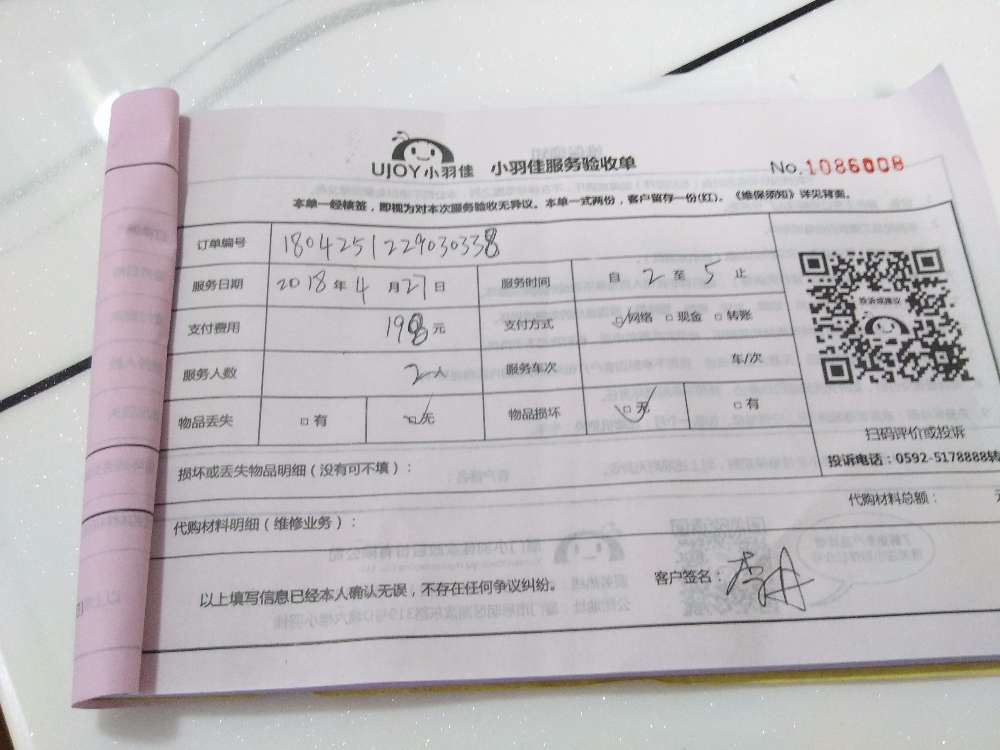 UJOY小羽佳 小羽佳服务验收单 No.1086008
本单一经核签，即视为对本次服务验收无异议。本单一式两份，客户留存一份(红)。《维保须知》详见背面。
订单编号 1804251229030338
服务日期 2018年4月27日 服务时间 自2至5止
支付费用 198元 支付方式 ☑网络 □现金 □转账
服务人数 2人 服务车次 车/次
物品丢失 □有 ☑无 物品损坏 ☑无 □有
扫码评价或投诉
损坏或丢失物品明细（没有可不填）： 投诉电话：0592-5178888转
代购材料明细（维修业务）： 代购材料总额：
以上填写信息已经本人确认无误，不存在任何争议纠纷。 客户签名：